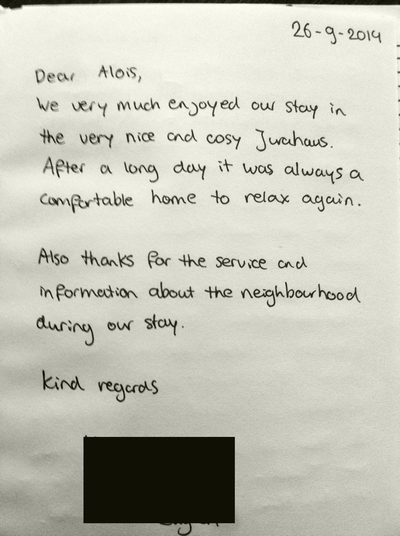 26-9-2014
Dear Alois,
We very much enjoyed our stay in
the very nice and cosy Jurahaus.
After a long day it was always a
comfortable home to relax again.
Also thanks for the service and
information about the neighbourhood
during our stay.
Kind regards